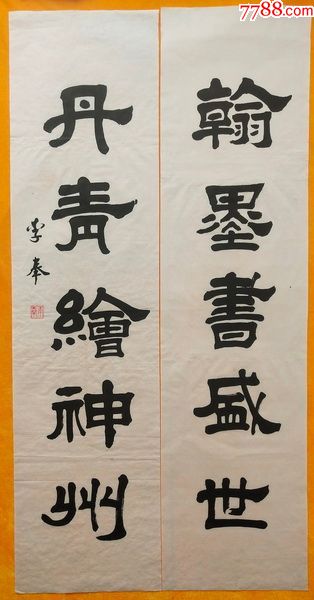 7788.com
翰墨書盛世
丹青繪神州
李奉